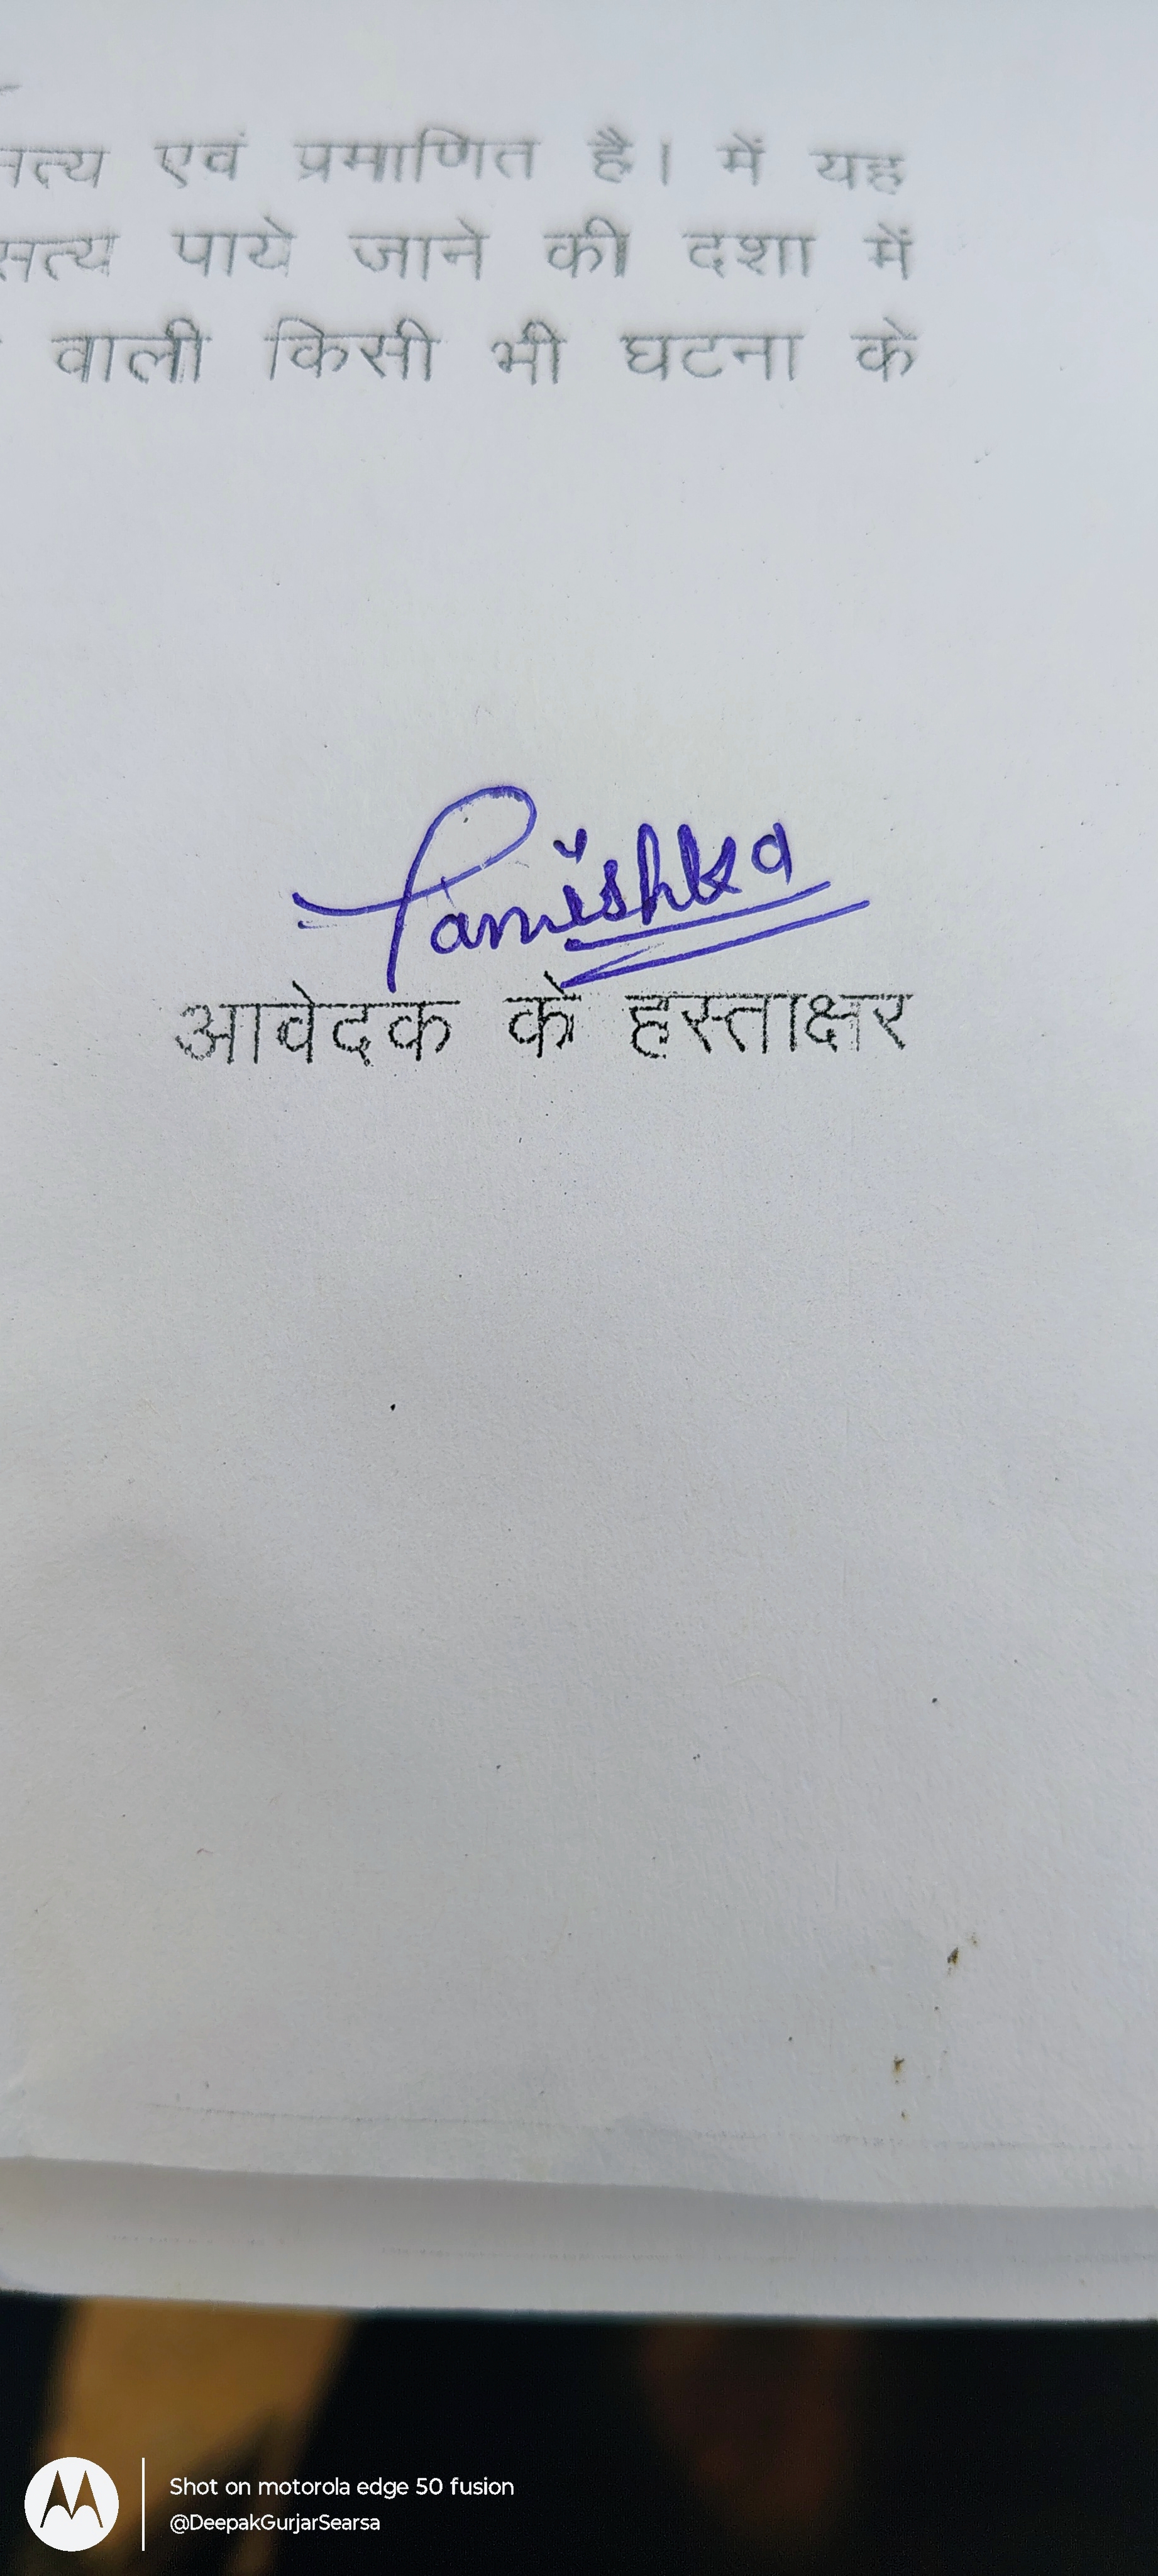 सत्य एवं प्रमाणित है। में यह
सत्य पाये जाने की दशा में
वाली किसी भी घटना के
Tamishka
आवेदक के हस्ताक्षर
Shot on motorola edge 50 fusion
@DeepakGurjarSearsa